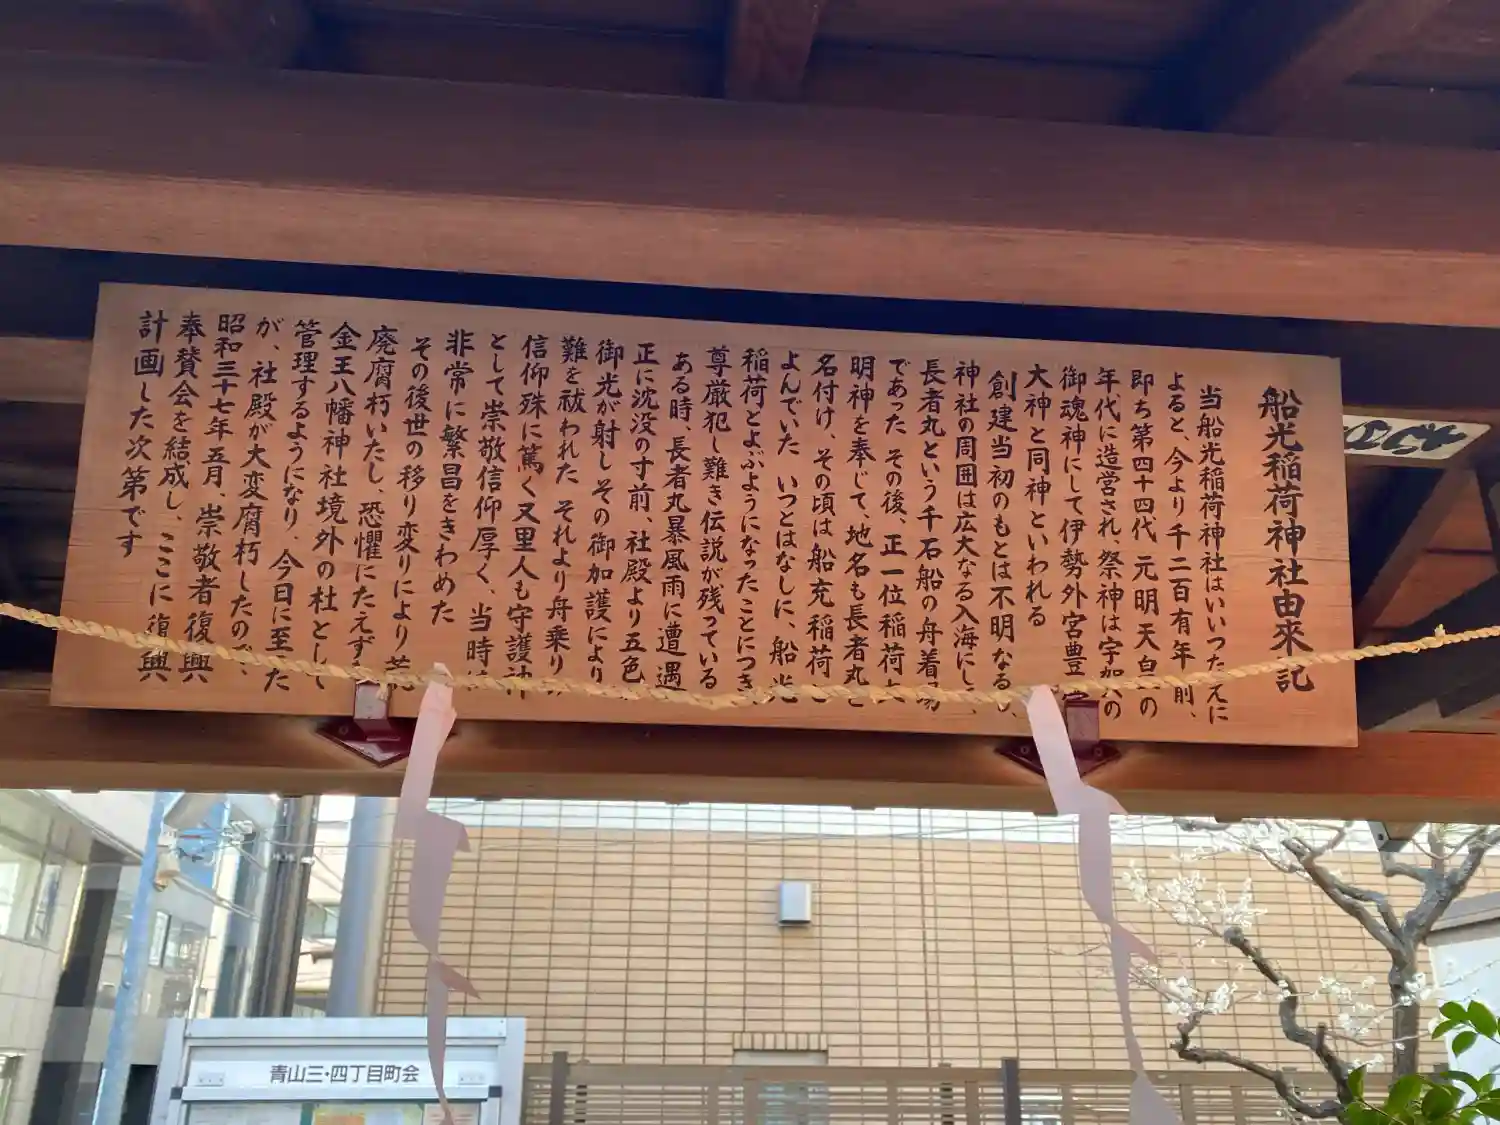 船光稲荷神社由來記
当船光稲荷神社はいいつたえに
よると、今より千二百有年前、
即ち第四十四代 元明天皇の
年代に造営され、祭神は宇加の
御魂神にして伊勢外宮豊
大神と同神といわれる
創建当初のもとは不明なるも、
神社の周囲は広大なる入海にして、
長者丸という千石船の舟着場
であった その後、正一位稲荷大
明神を奉じて、地名も長者丸と
名付け、その頃は船充稲荷と
よんでいた いつとはなしに、船光
稲荷とよぶようになったことにつき、
尊厳犯し難き伝説が残っている
ある時、長者丸暴風雨に遭遇
正に沈没の寸前、社殿より五色
御光が射しその御加護により
難を祓われた それより舟乗り
信仰殊に篤く又里人も守護神
として崇敬信仰厚く、当時
非常に繁昌をきわめた
その後世の移り変りにより荒
廃腐朽いたし、恐懼にたえず
金王八幡神社境外の社として
管理するようになり、今日に至った
が、社殿が大変腐朽したので、
昭和三十七年五月、崇敬者復興
奉賛会を結成し、ここに復興
計画した次第です
青山三・四丁目町会